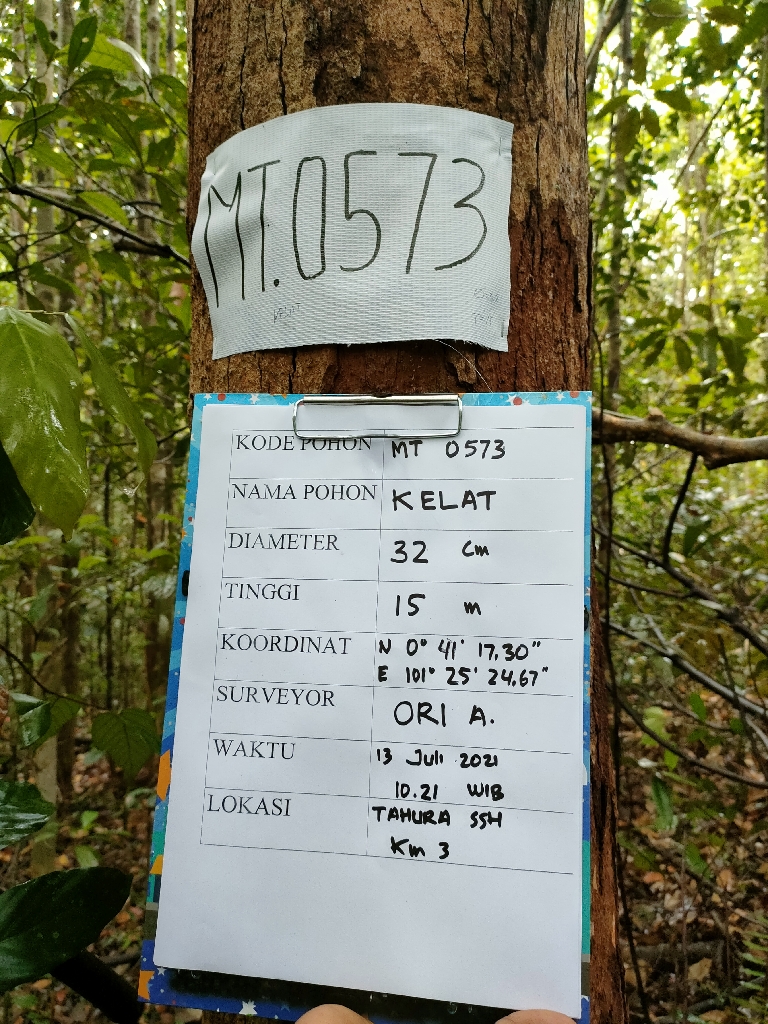 MT.0573
KELAT
KODE POHON MT 0573
NAMA POHON KELAT
DIAMETER 32 Cm
TINGGI 15 m
KOORDINAT N 0° 41' 17,30"
E 101° 25' 24.67"
SURVEYOR ORI A.
WAKTU 13 Juli 2021
10.21 WIB
LOKASI TAHURA SSH
Km 3